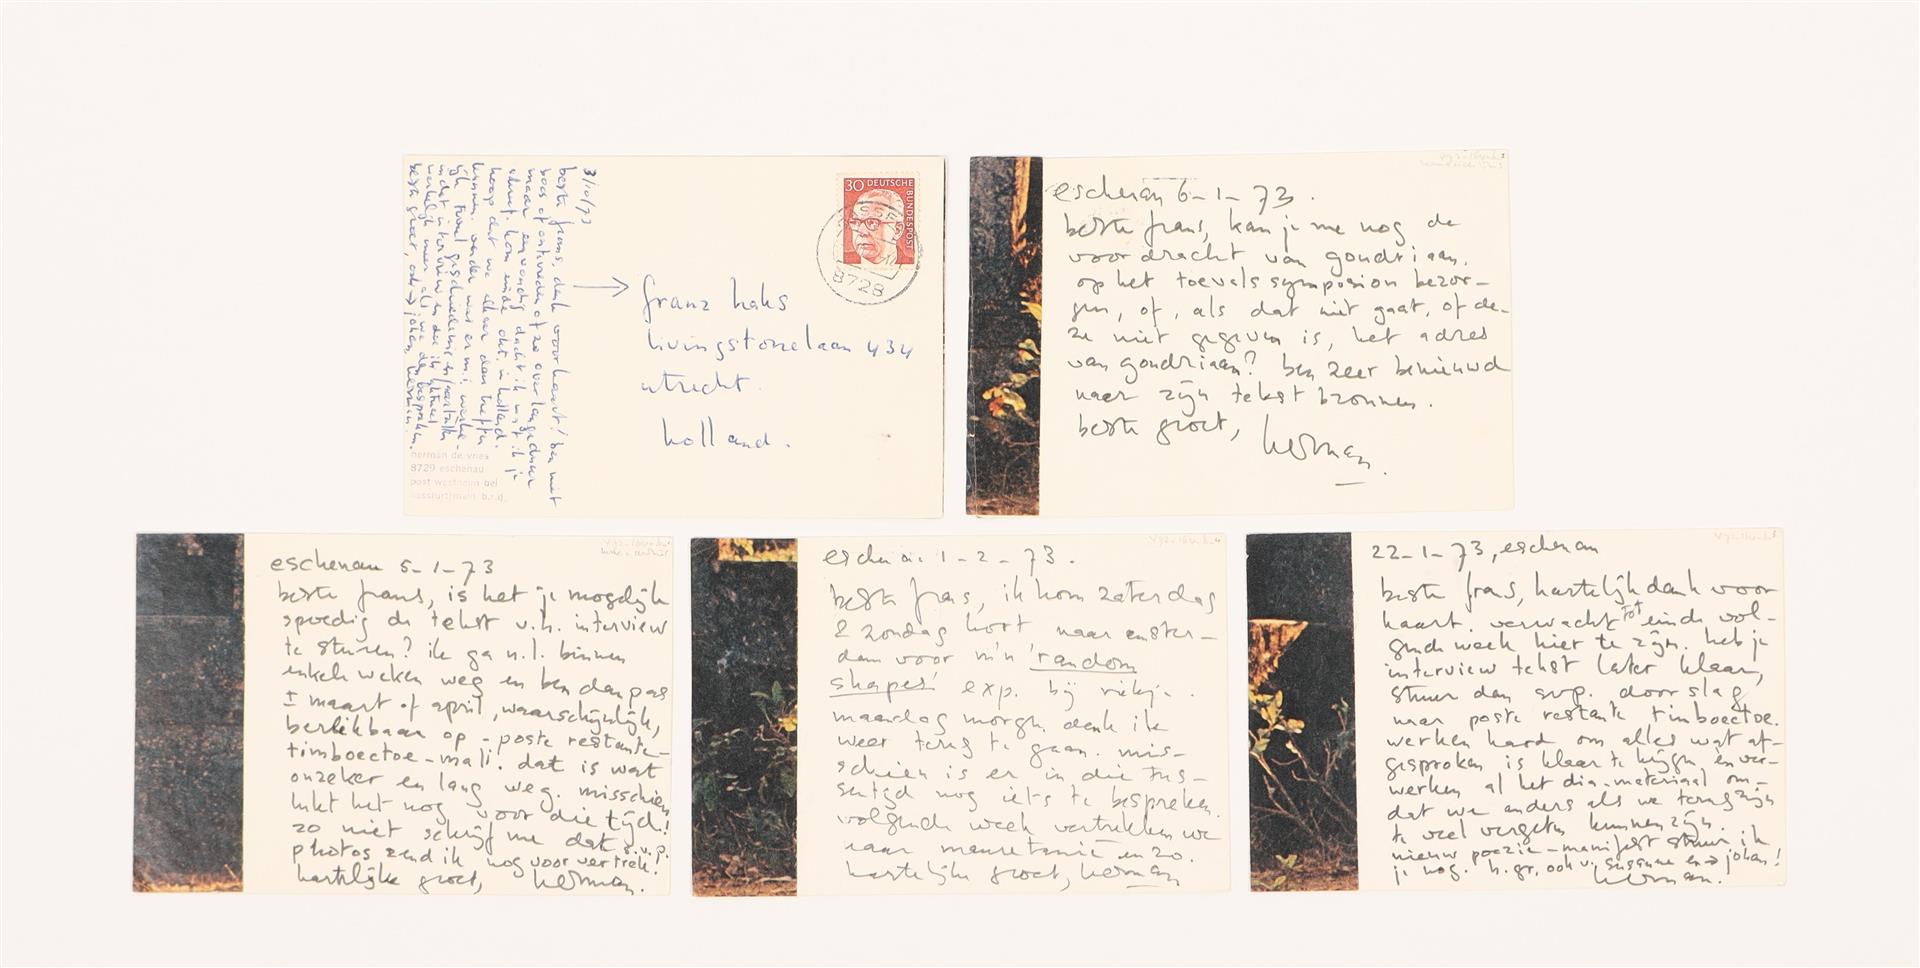 3/10/73
beste frans, dank voor kaart! ben niet
boos of ontevreden of zo over langeduur
maar eenvoudig dacht ik moet ik je
kom einde okt. in holland.
hoop dat we elkaar dan treffen
kunnen. verder was er m.i.
beste groet, ook → johan herman.
herman de vries
8729 eschenau
post westheim bei
hassfurt/main b.r.d.
30 DEUTSCHE
BUNDESPOST
8728
franz haks
livingstonelaan 434
utrecht.
holland.
eschenau 6-1-73.
beste frans, kan je me nog de
voordracht van goudriaan,
op het toevalssymposion bezor-
gen, of, als dat niet gaat, of de-
ze niet gegeven is, het adres
van goudriaan? ben zeer benieuwd
naar zijn tekst bronnen.
beste groet, herman.
eschenau 5-1-73
beste frans, is het je mogelijk
spoedig de tekst v.h. interview
te sturen? ik ga n.l. binnen
enkele weken weg en ben dan pas
± maart of april, waarschijnlijk,
bereikbaar op - poste restante -
timboectoe - mali. dat is wat
onzeker en lang weg. misschien
lukt het nog voor die tijd!
zo niet schrijf me dat s.v.p.
photos zend ik nog voor vertrek!
hartelijke groet, herman.
1-2-73.
beste frans, ik kom zaterdag
& zondag kort naar amster-
dam voor m'n 'random
shapes' exp. bij riekje.
maandag morgen denk ik
weer terug te gaan. mis-
schien is er in die tus-
sentijd nog iets te bespreken.
volgende week vertrekken we
naar mauretanië en zo.
hartelijke groet, herman
22-1-73, eschenau
beste frans, hartelijk dank voor
kaart. verwacht tot einde vol-
gende week hier te zijn. heb je
interview tekst later klaar,
stuur dan svp. doorslag
naar poste restante timboectoe.
werken hard om alles wat af-
gesproken is klaar te krijgen en ver-
werken al het dia-materiaal om-
dat we anders als we terug zijn
te veel vergeten kunnen zijn.
nieuw poezie-manifest stuur ik
je nog. h. gr. ook v. susanne en → johan!
herman.